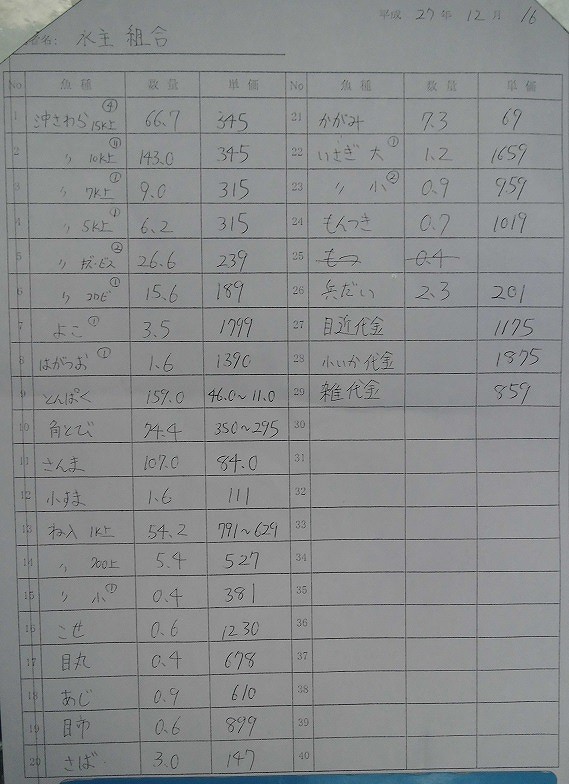 平成 27年 12月 16
名: 水主 組合
No 魚種 数量 単価 No 魚種 数量 単価
1 沖さわら 15K上 ④ 66.7 345 21 かがみ 7.3 69
2 〃 10K上 143.0 345 22 いさぎ 大 ① 1.2 1659
3 〃 7K上 ① 9.0 315 23 〃 小 ② 0.9 959
4 〃 5K上 ① 6.2 315 24 もんつき 0.7 1019
5 〃 ② 26.6 239 25 もつ 0.4
6 〃 ① 15.6 189 26 兵だい 2.3 201
7 よこ ① 3.5 1799 27 目近代金 1175
8 はがつお ① 1.6 1390 28 小いか代金 1875
9 とんぱく 159.0 46.0~11.0 29 雑代金 859
10 角とび 74.4 350~295 30
11 さんま 107.0 84.0 31
12 小すま 1.6 111 32
13 ね入 1K上 54.2 791~629 33
14 〃 700上 5.4 527 34
15 〃 小 ① 0.4 381 35
16 こせ 0.6 1230 36
17 目丸 0.4 678 37
18 あじ 0.9 610 38
19 目市 0.6 899 39
20 さば 3.0 147 40